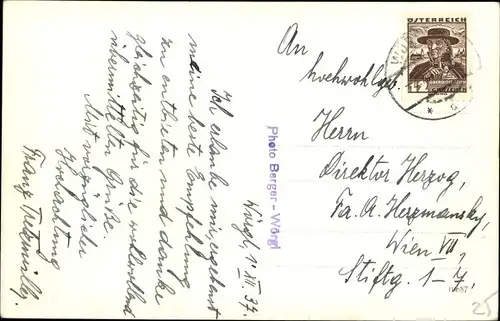 Wörgl, 1. XII. 37.
Ich erlaube mir, ergebenst
meine beste Empfehlung
zu entbieten und danke
gleichzeitig für die
übermittelten Grüße.
Mit vorzüglicher
Hochachtung
Franz
Photo Berger - Wörgl
ÖSTERREICH
GROSCHEN
An
hochwohlgeb.
Herrn
Direktor Herzog,
Fa. A. Herzmansky,
Wien VII,
Stiftg. 1-7,
25